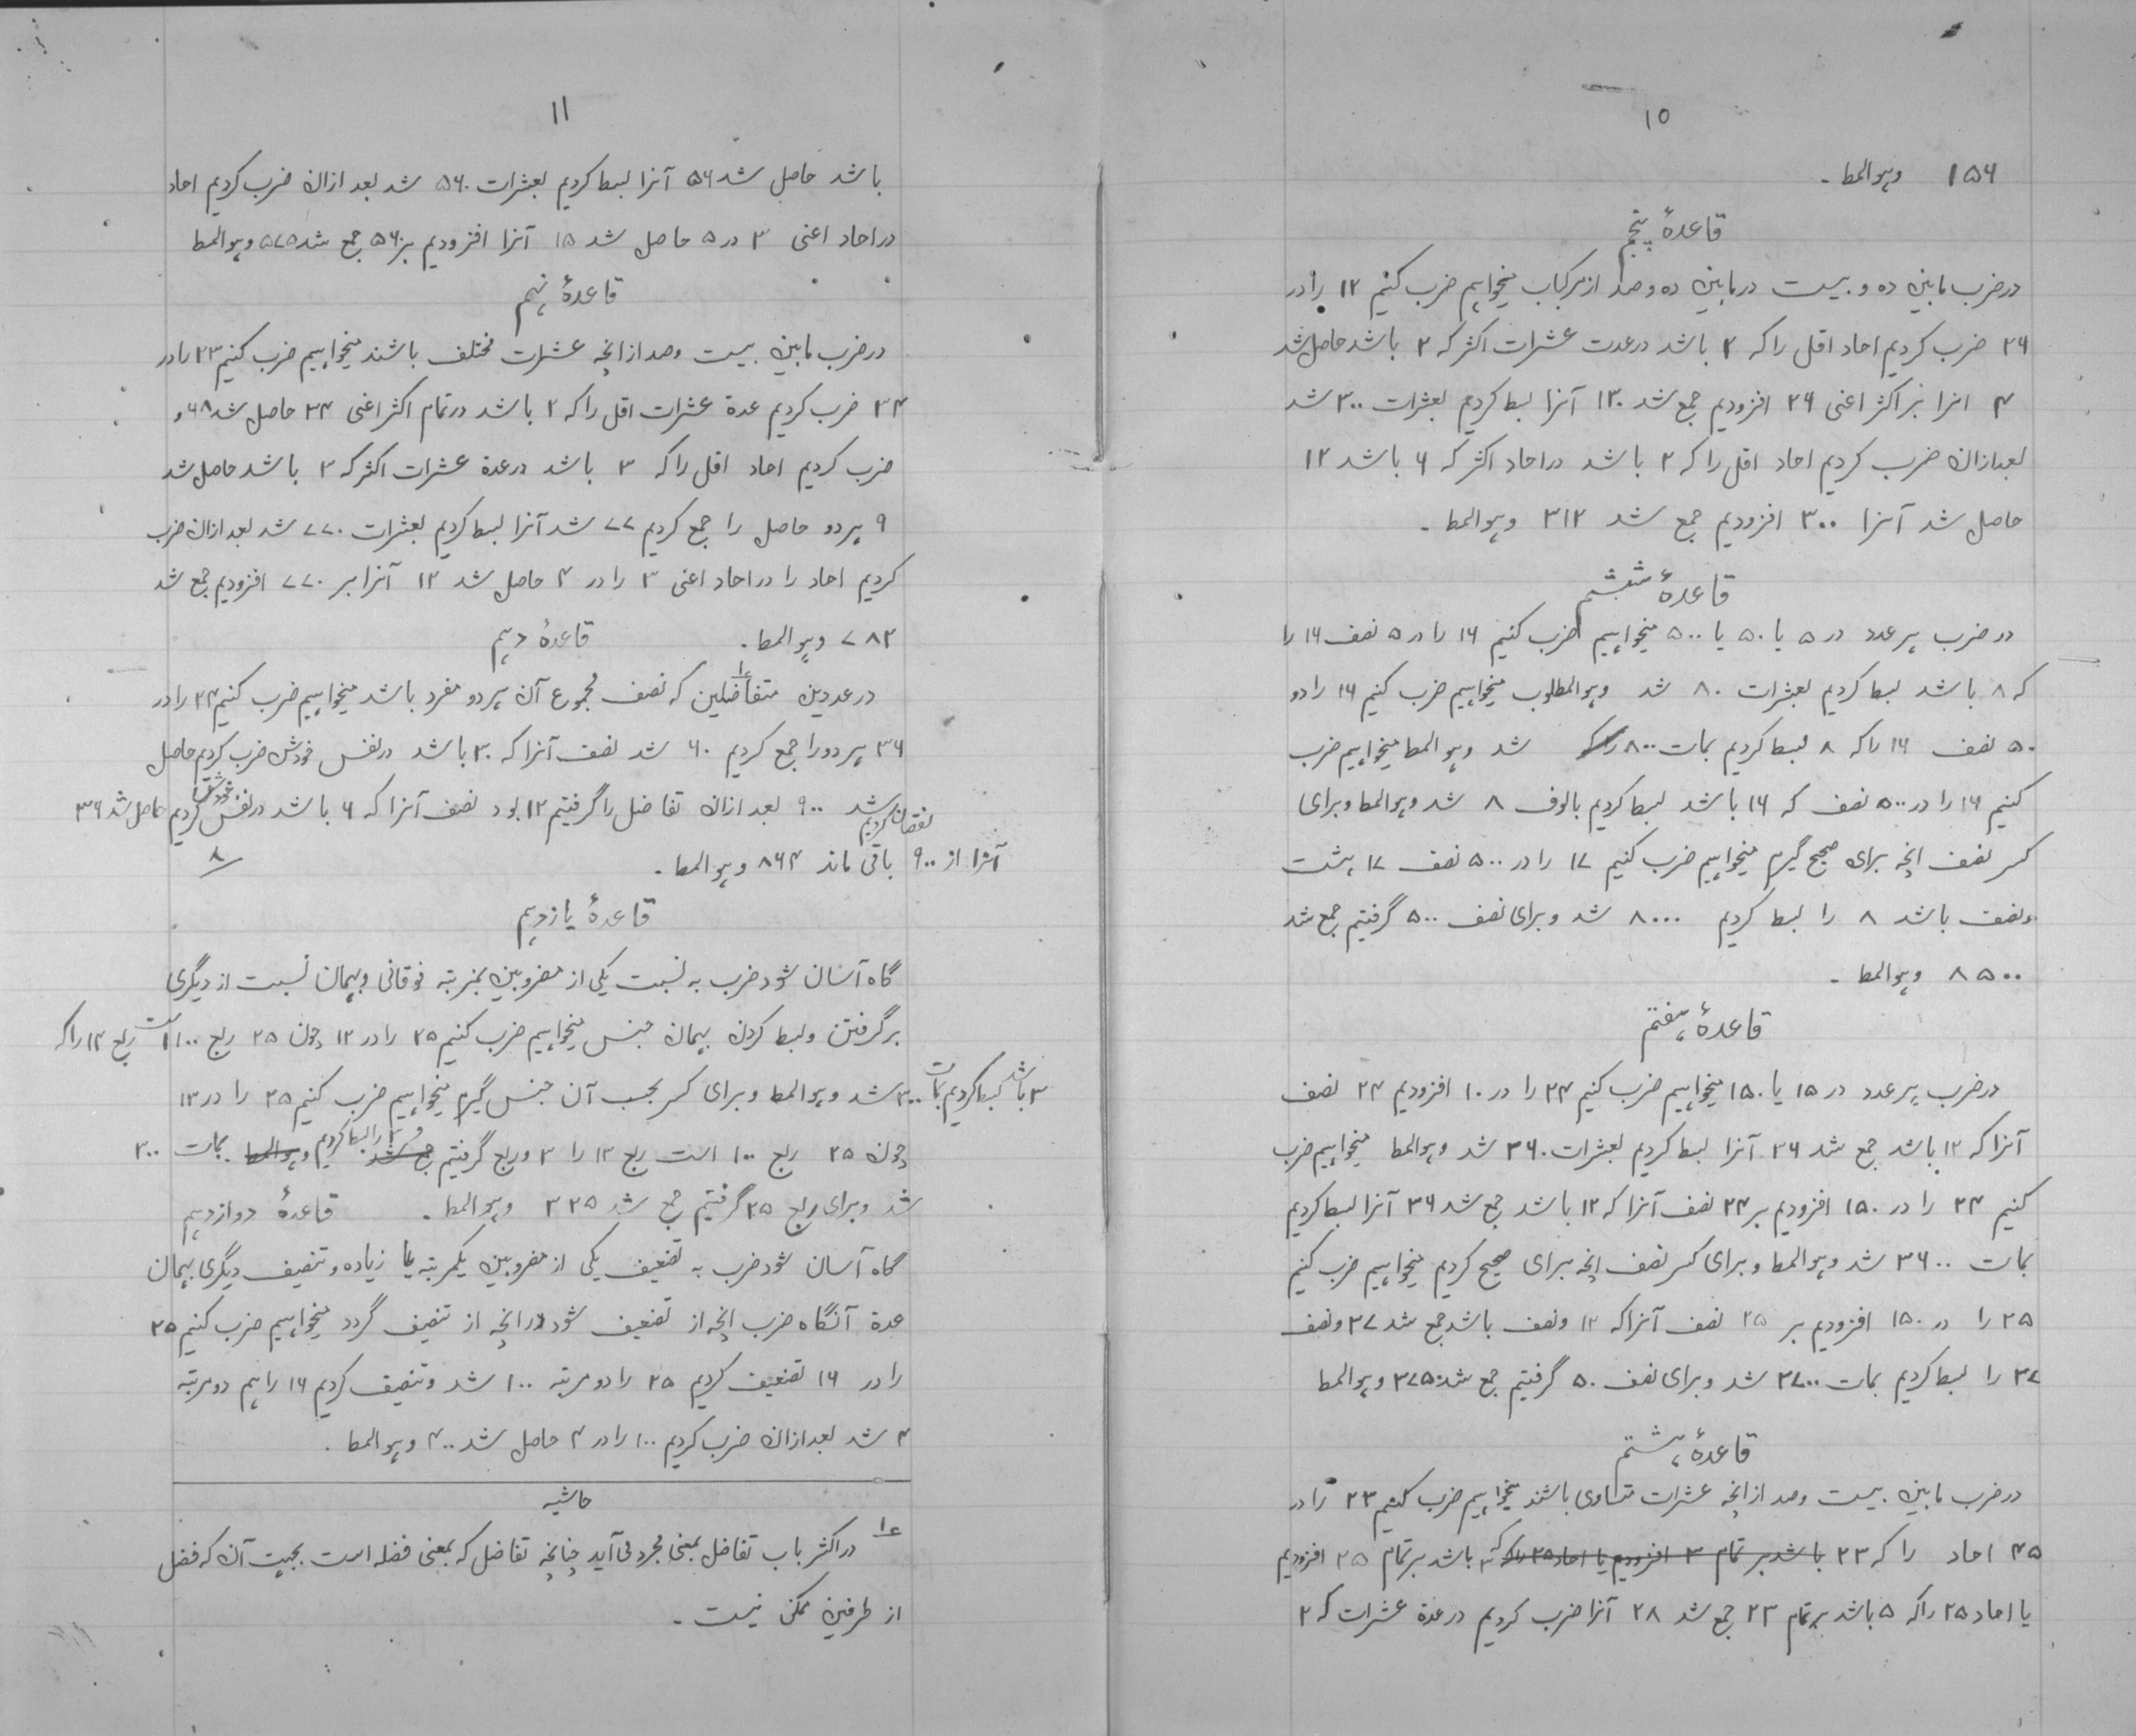 ۱۰
۱۵۶ وہوالمط۔
قاعدۂ پنجم
در ضرب مابین دہ و بیست در مابین دہ و صد از مرکبات میخواہیم ضرب کنیم ۱۲ را در
۲۶ ضرب کردیم احاد اقل را کہ ۲ باشد در عدت عشرات اکثر کہ ۲ باشد حاصل شد
۴ انرا بر اکثر اعنی ۲۶ افزودیم جمع شد ۳۰ آنرا بسط کردیم بعشرات ۳۰۰ شد
بعد ازان ضرب کردیم احاد اقل را کہ ۲ باشد در احاد اکثر کہ ۶ باشد ۱۲
حاصل شد آنرا ۳۰۰ افزودیم جمع شد ۳۱۲ وہوالمط۔
قاعدۂ ششم
در ضرب ہر عدد در ۵ یا ۵۰ یا ۵۰۰ میخواہیم ضرب کنیم ۱۶ را در ۵ نصف ۱۶ را
کہ ۸ باشد بسط کردیم بعشرات ۸۰ شد وہوالمطلوب میخواہیم ضرب کنیم ۱۶ را در
۵۰ نصف ۱۶ را کہ ۸ بسط کردیم بمات ۸۰۰ شد وہوالمط میخواہیم ضرب
کنیم ۱۶ را در ۵۰۰ نصف کہ ۱۶ باشد بسط کردیم بالوف ۸ شد وہوالمط وبرای
کسر نصف انچہ برای صحیح گیریم میخواہیم ضرب کنیم ۱۷ را در ۵۰۰ نصف ۱۷ ہشت
ونصف باشد ۸ را بسط کردیم ۸۰۰۰ شد وبرای نصف ۵۰۰ گرفتیم جمع شد
۸۵۰۰ وہوالمط۔
قاعدۂ ہفتم
در ضرب ہر عدد در ۱۵ یا ۱۵۰ میخواہیم ضرب کنیم ۲۴ را در ۱۰ افزودیم ۲۴ نصف
آنرا کہ ۱۲ باشد جمع شد ۳۶ آنرا بسط کردیم بعشرات ۳۶۰ شد وہوالمط میخواہیم ضرب
کنیم ۲۴ را در ۱۵۰ افزودیم بر ۲۴ نصف آنرا کہ ۱۲ باشد جمع شد ۳۶ آنرا بسط کردیم
بمات ۳۶۰۰ شد وہوالمط وبرای کسر نصف انچہ برای صحیح کردیم میخواہیم ضرب کنیم
۲۵ را در ۱۵۰ افزودیم بر ۲۵ نصف آنرا کہ ۱۲ ونصف باشد جمع شد ۳۷ ونصف
۳۷ را بسط کردیم بمات ۳۷۰۰ شد وبرای نصف ۵۰ گرفتیم جمع شد ۳۷۵۰ وہوالمط
قاعدۂ ہشتم
در ضرب مابین بیست وصد از انچہ عشرات متساوی باشند میخواہیم ضرب کنیم ۲۳ را در
۲۵ احاد را کہ ۲۳ باشد بر تمام ۳ افزودیم یا احاد ۲۵ را کہ ۳ باشد بر تمام ۲۵ افزودیم
یا احاد ۲۵ را کہ ۵ باشد بر تمام ۲۳ جمع شد ۲۸ آنرا ضرب کردیم در عدۃ عشرات کہ ۲
۱۱
باشد حاصل شد ۵۶ آنرا بسط کردیم بعشرات ۵۶۰ شد بعد ازان ضرب کردیم احاد
در احاد اعنی ۳ در ۵ حاصل شد ۱۵ آنرا افزودیم بر ۵۶۰ جمع شد ۵۷۵ وہوالمط
قاعدۂ نہم
در ضرب مابین بیست وصد از انچہ عشرات مختلف باشند میخواہیم ضرب کنیم ۲۳ را در
۳۴ ضرب کردیم عدۃ عشرات اقل را کہ ۲ باشد در تمام اکثر اعنی ۳۴ حاصل شد ۶۸ و
ضرب کردیم احاد اقل را کہ ۳ باشد در عدۃ عشرات اکثر کہ ۳ باشد حاصل شد
۹ ہر دو حاصل را جمع کردیم ۷۷ شد آنرا بسط کردیم بعشرات ۷۷۰ شد بعد ازان ضرب
کردیم احاد را در احاد اعنی ۳ را در ۴ حاصل شد ۱۲ آنرا بر ۷۷۰ افزودیم جمع شد
۷۸۲ وہوالمط۔ قاعدۂ دہم
در عددین متفاضلین کہ نصف مجموع آن ہر دو مفرد باشد میخواہیم ضرب کنیم ۲۴ را در
۳۶ ہر دو را جمع کردیم ۶۰ شد نصف آنرا کہ ۳۰ باشد در نفس خودش ضرب کردیم حاصل
شد ۹۰۰ بعد ازان تفاضل را گرفتیم ۱۲ بود نصف آنرا کہ ۶ باشد در نفس خودش کردیم حاصل شد ۳۶
آنرا از ۹۰۰ نقصان کردیم باقی ماند ۸۶۴ وہوالمط۔
قاعدۂ یازدہم
گاہ آسان شود ضرب بہ نسبت یکی از مضروبین بمرتبہ فوقانی وبہمان نسبت از دیگری
برگرفتن وبسط کردن بہمان جنس میخواہیم ضرب کنیم ۲۵ را در ۱۲ چون ۲۵ ربع ۱۰۰ است ربع ۱۲ را کہ
۳ باشد بسط کردیم بمات ۳۰۰ شد وہوالمط وبرای کسر بحسب آن جنس گیریم میخواہیم ضرب کنیم ۲۵ را در ۱۳
چون ۲۵ ربع ۱۰۰ است ربع ۱۳ را ۳ وربع گرفتیم جمع شد و ۳ را بسط کردیم وہوالمط بمات ۳۰۰
شد وبرای ربع ۲۵ گرفتیم جمع شد ۳۲۵ وہوالمط۔ قاعدۂ دوازدہم
گاہ آسان شود ضرب بہ تضعیف یکی از مضروبین یکمرتبہ یا زیادہ وتنصیف دیگری بہمان
عدۃ آنگاہ ضرب انچہ از تضعیف شود در انچہ از تنصیف گردد میخواہیم ضرب کنیم ۲۵
را در ۱۶ تضعیف کردیم ۲۵ را دو مرتبہ ۱۰۰ شد وتنصیف کردیم ۱۶ را ہم دو مرتبہ
۴ شد بعد ازان ضرب کردیم ۱۰۰ را در ۴ حاصل شد ۴۰۰ وہوالمط۔
حاشیہ
در اکثر باب تفاضل بمعنی مجرد می آید چنانچہ تفاضل کہ بمعنی فضلہ است بجہت آن کہ فضل
از طرفین ممکن نیست۔